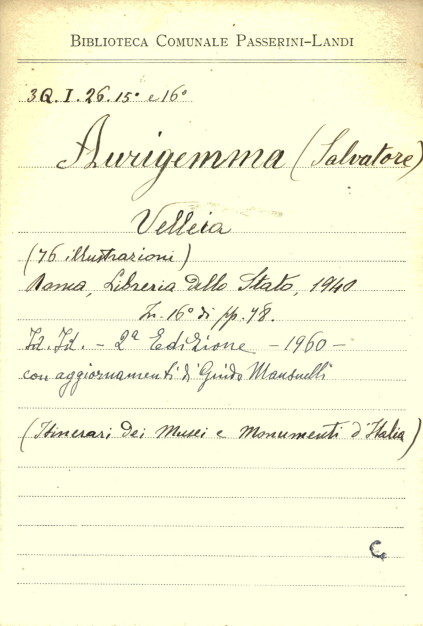 BIBLIOTECA COMUNALE PASSERINI-LANDI
3Q. I. 26. 15° e 16°
Aurigemma (Salvatore)
Velleia
(76 illustrazioni)
Roma, Libreria dello Stato, 1940
In 16° di pp. 78.
Id. Id. - 2ª Edizione - 1960 -
con aggiornamenti di Guido Mansuelli
(Itinerari dei Musei e Monumenti d'Italia)
C